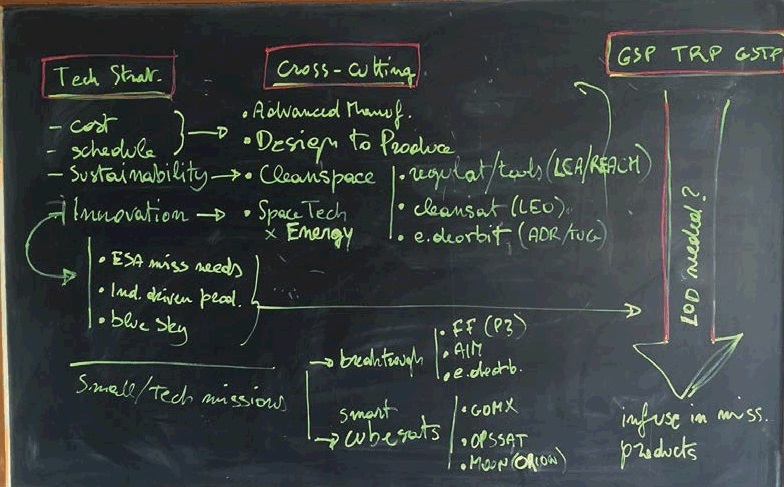 Tech Strat.
- cost
- schedule
- Sustainability
- Innovation
• ESA miss needs
• Ind. driven prod.
• blue sky
Cross-cutting
• Advanced Manuf.
• Design to Produce
• Cleanspace
• regulat/tools (LCA/REACH)
• cleansat (LEO)
• e.deorbit (ADR/TUG)
• Space Tech
x Energy
GSP TRP GSTP
LOD needed?
infuse in miss.
products
Small/Tech missions
breakthrough
• FF (P3)
• AIM
• e.deorb.
smart
cubesats
• GOMX
• OPSSAT
• MOON (ORION)